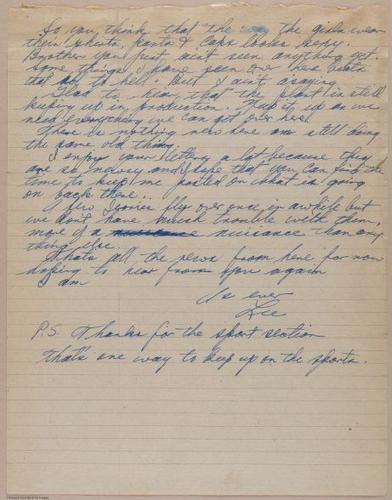 So you think that the way the girls wear
their shirts, pants & caps looks sexy.
Brother you just ain't seen anything yet.
Some things I have seen over here beats
that all to hell. But I ain't arguing.
Glad to hear that the plant is still
keeping up in production. Keep it up as we
need everything we can get over here.
There is nothing new here am still doing
the same old thing.
I enjoy your letters a lot because they
are so newsy and hope that you can find the
time to keep me posted on what is going
on back there.
few Jerries fly over once in awhile but
we don't have much trouble with them,
more of a nuisance than any
thing else.
Thats all the news from here for now
hoping to hear from you again
I am
As ever
Lee
P.S. Thanks for the sport section
thats one way to keep up on the sports.